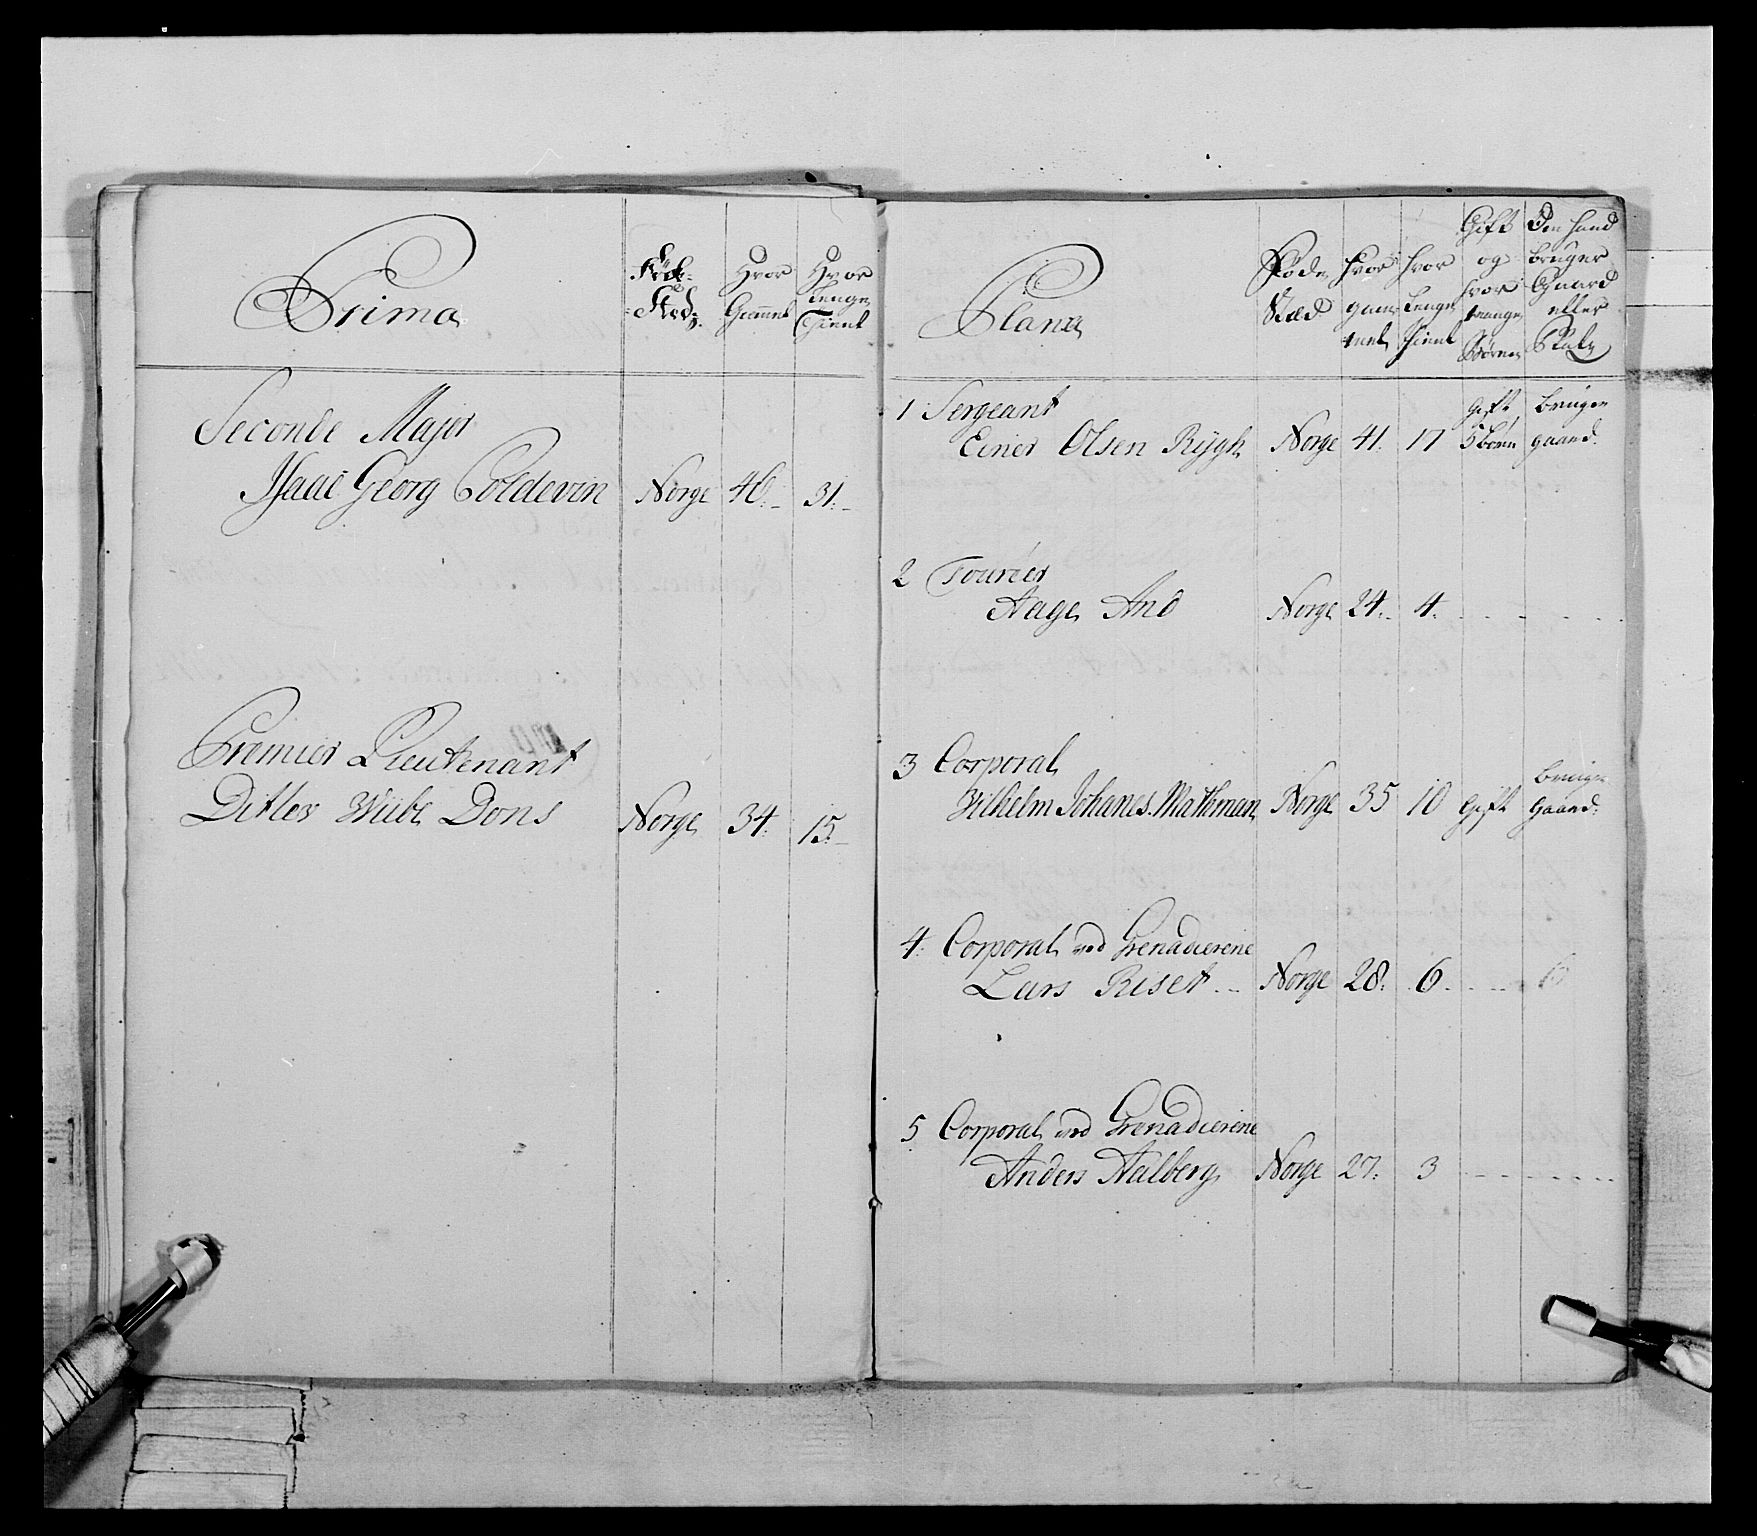 Prima
Föde-
Sted
Hvor
Gammel
Hvor
Lenge
Tient
Seconde Major
Isaac Georg Coldevin Norge 46. 31.
Premier Lieutenant
Ditlev Wiibe Dons Norge 34. 15.
Plana
Føde
Stæd
hvor
gam
mel
hvor
Lenge
tient
Gift
og
hvor
mange
Børn
Om hand
bruger
Gaard
eller
Pladz
1 Sergeant Gift bruger
Einer Olsen Rÿgh Norge 41. 17 5 børn gaard.
2 Fourier
Aage And Norge 24. 4.
3 Corporal bruger
Wilhelm Johanes Matheman Norge 35 10 Gift Gaard.
4. Corporal ved Grenadierene
Lars Riset Norge 28. 6.
5 Corporal ved Grenadierene
Anders Aalberg Norge 27. 3